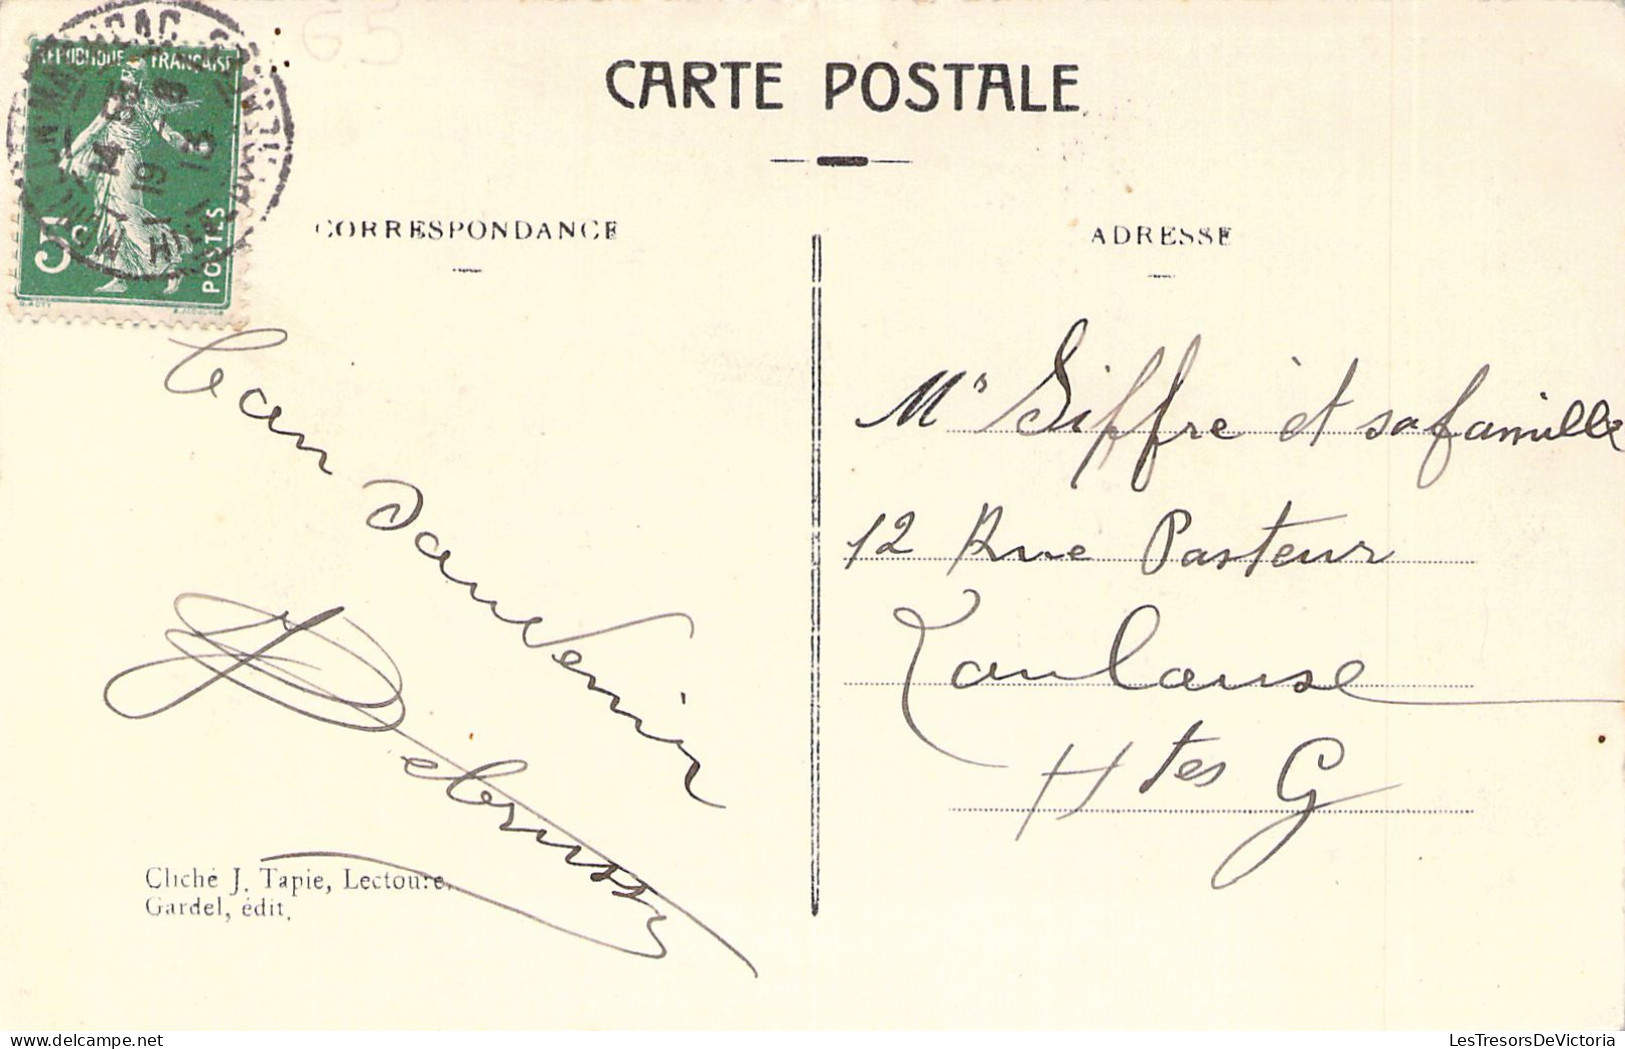 RÉPUBLIQUE FRANÇAISE
5 c
POSTES
14
19
13
CARTE POSTALE
CORRESPONDANCE
ADRESSE
Bon Souvenir
Debrussy
Mr Siffre et sa famille
12 Rue Pasteur
Toulouse
Htes G
Cliché J. Tapie, Lectoure.
Gardel, édit.
LesTresorsDeVictoria